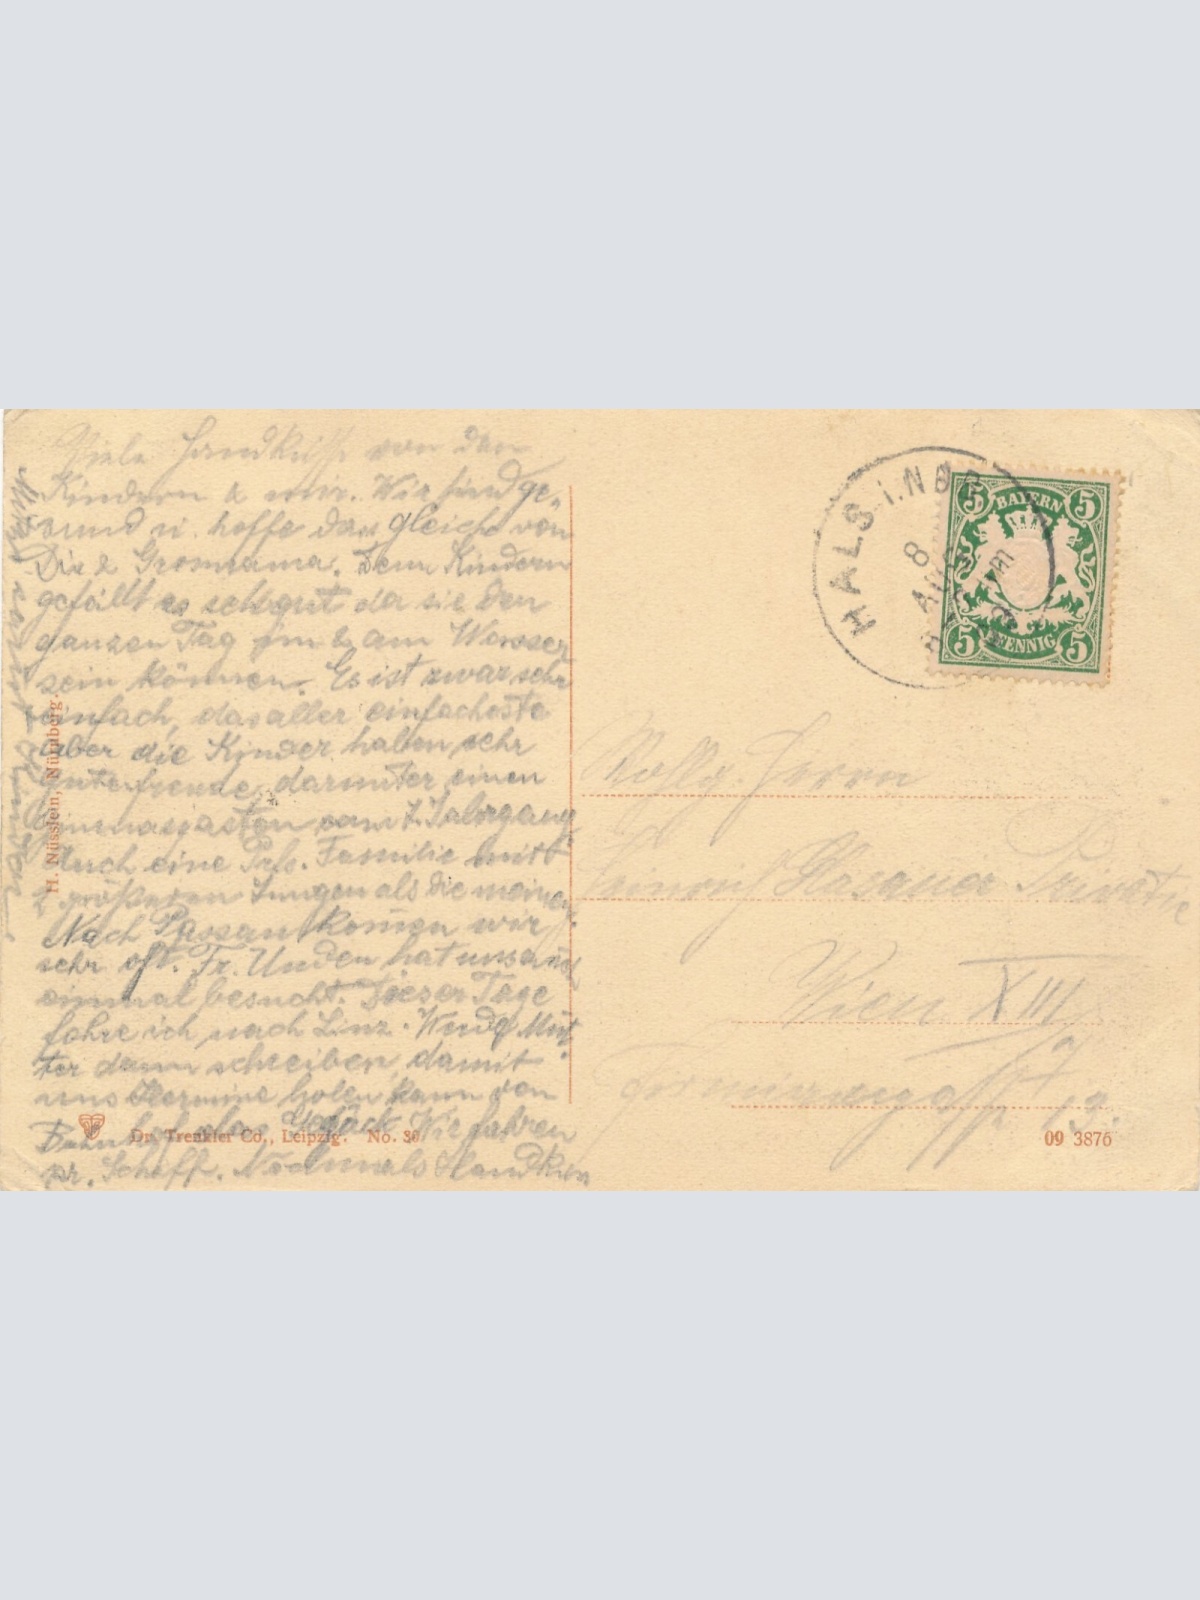 Viele Handküsse von den
Kindern & mir. Wir sind ge-
sund u. hoffe das gleiche von
Dir & Grosmama. Denn Kindern
gefällt es sehr gut da sie den
ganzen Tag im & am Wasser
sein können. Es ist zwar sehr
einfach, das aller einfachste
aber die Kinder haben sehr
gute freunde, darunter einen
Gimnasiasten vom 7. Jahrgang
Auch eine Familie mit
2 größeren Jungen als die meinen
Nach Passau komen wir
sehr oft. Fr. Unden hat uns auch
einmal besucht. Dieser Tage
fahre ich nach Linz. Werde Mut-
ter dann schreiben, damit
uns Hermine holen kann vom
Bahnhof das Gepäck. Wir fahren
pr. Schiff. Nochmals Handkuss
H. Nüsslein, Nürnberg.
Dr. Trenkler Co., Leipzig. No. 30
HALS i. NDB
8
AUG
BAYERN
5 5
5 5
PFENNIG
Herrn
Privatie
Wien XIII
09 3876